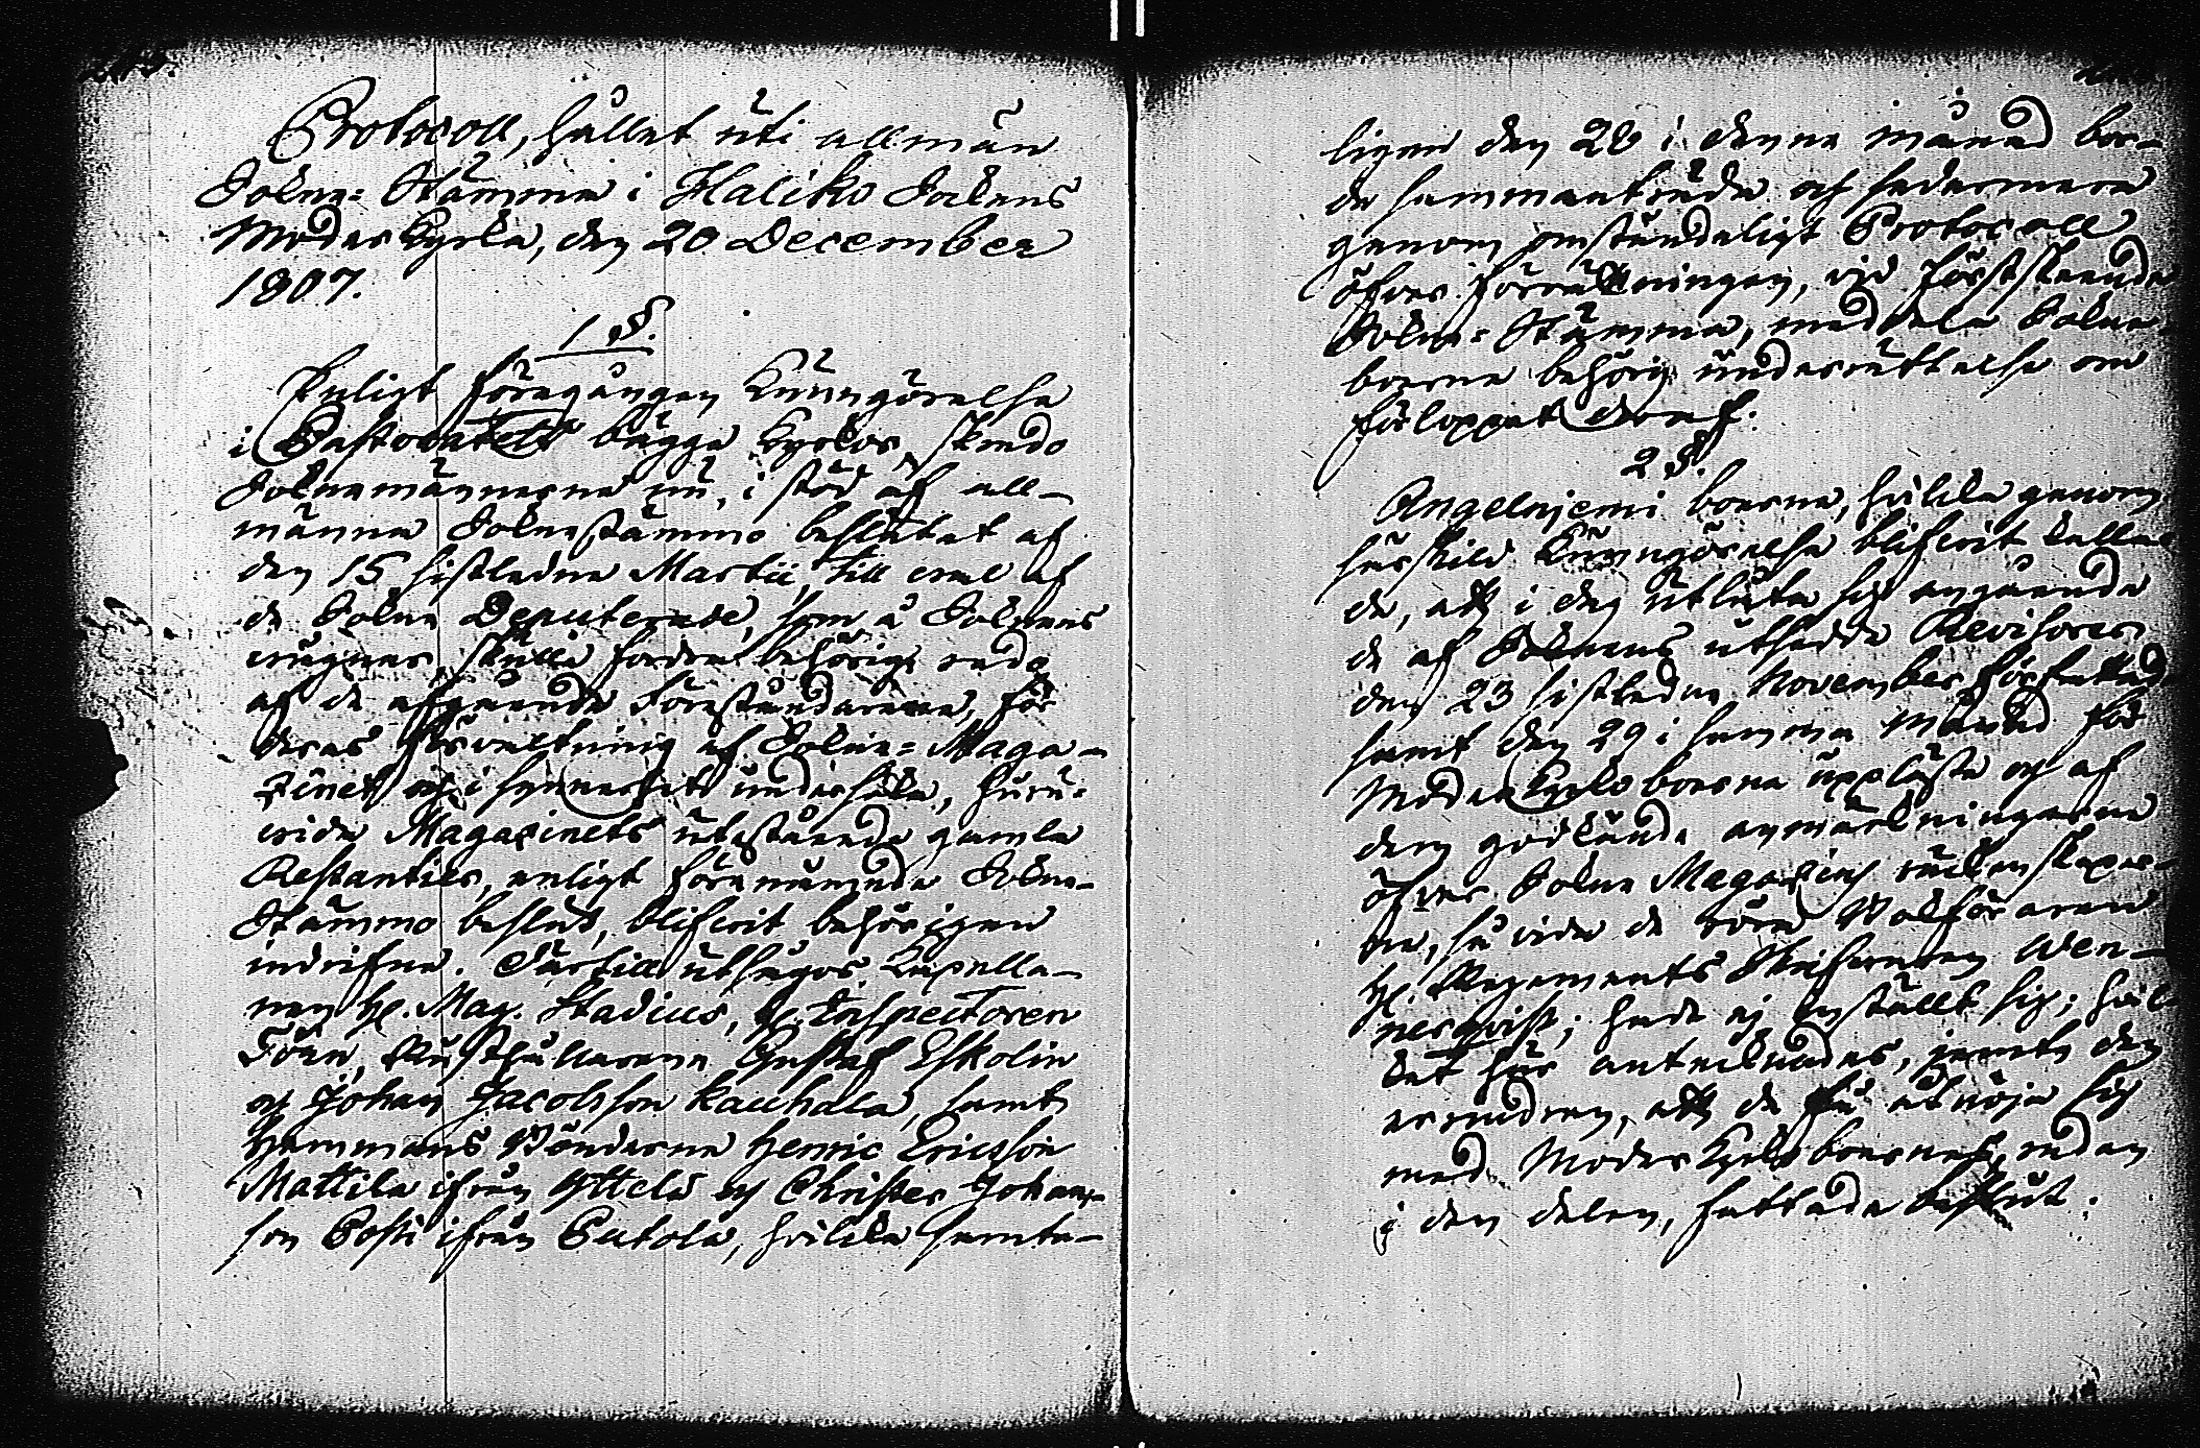 Protocoll, hållet uti allmän
Sokne-Stämma i Haliko Sokens
Moderkyrka, den 20 December
1807.
1 §.
Enligt föregången kunngörelse
i Pastoratets bägge kyrkor, skredo
Soknemännerne nu, i stöd af all-
männa Soknestämmo beslutet af
den 15 sistledne Martii, till wal af
de Sokne Deputerade, som å Soknens
wägnar skulle fordra behörig redo
af de afgående Föreståndarena, för
deras förvaltning af Sokne-Maga-
zinet och i synnerhet undersöka, huru-
wida Magazinets utestående gamla
Restantier, enligt förenämnde Sokne-
Stämmo beslut, blifwit behörigen
indrifne. Därtill utsågos Kapella-
nen H. Mag. Stadius, H. Inspectoren
Törn, Rusthållarene Gustaf Eskolin
och Johan Jacobsson Kauhala, samt
Hemmans Bönderne Henric Ericsson
Mattila ifrån Yttelä och Christer Johans-
son Påsti ifrån Putola, hvilka samte-
ligen den 28 i denne månad bor-
de sammanträda och sedermera
genom omständeligt Protocoll
öfver förrättningen, vid förstskeende
Sokne-Stämma, meddela Sokne-
boerne behörig underrättelse om
förloppet deraf.
2 §.
Angelniemi boerne, hvilka genom
särskild kunngörelse blifwit kalla-
de, att i dag utlåta sig angående
de af Soknens utsedde Revisorer
den 23 sistledne November författade
samt den 29 i samma Månad för
Moderkyrko boerne uppläste och af
dem godkände anmärkningarne
öfver Sokne Magazins räkenskaper-
ne, så vida de röra Bokföraren
H. Regements Skrifvaren Wen-
nerqvist; hade ej instält sig; hvil-
ket här antecknades, jemte den
erindran, att de få åtnöja sig
med Moderkyrko boernes, redan
i den delen, fattade beslut.